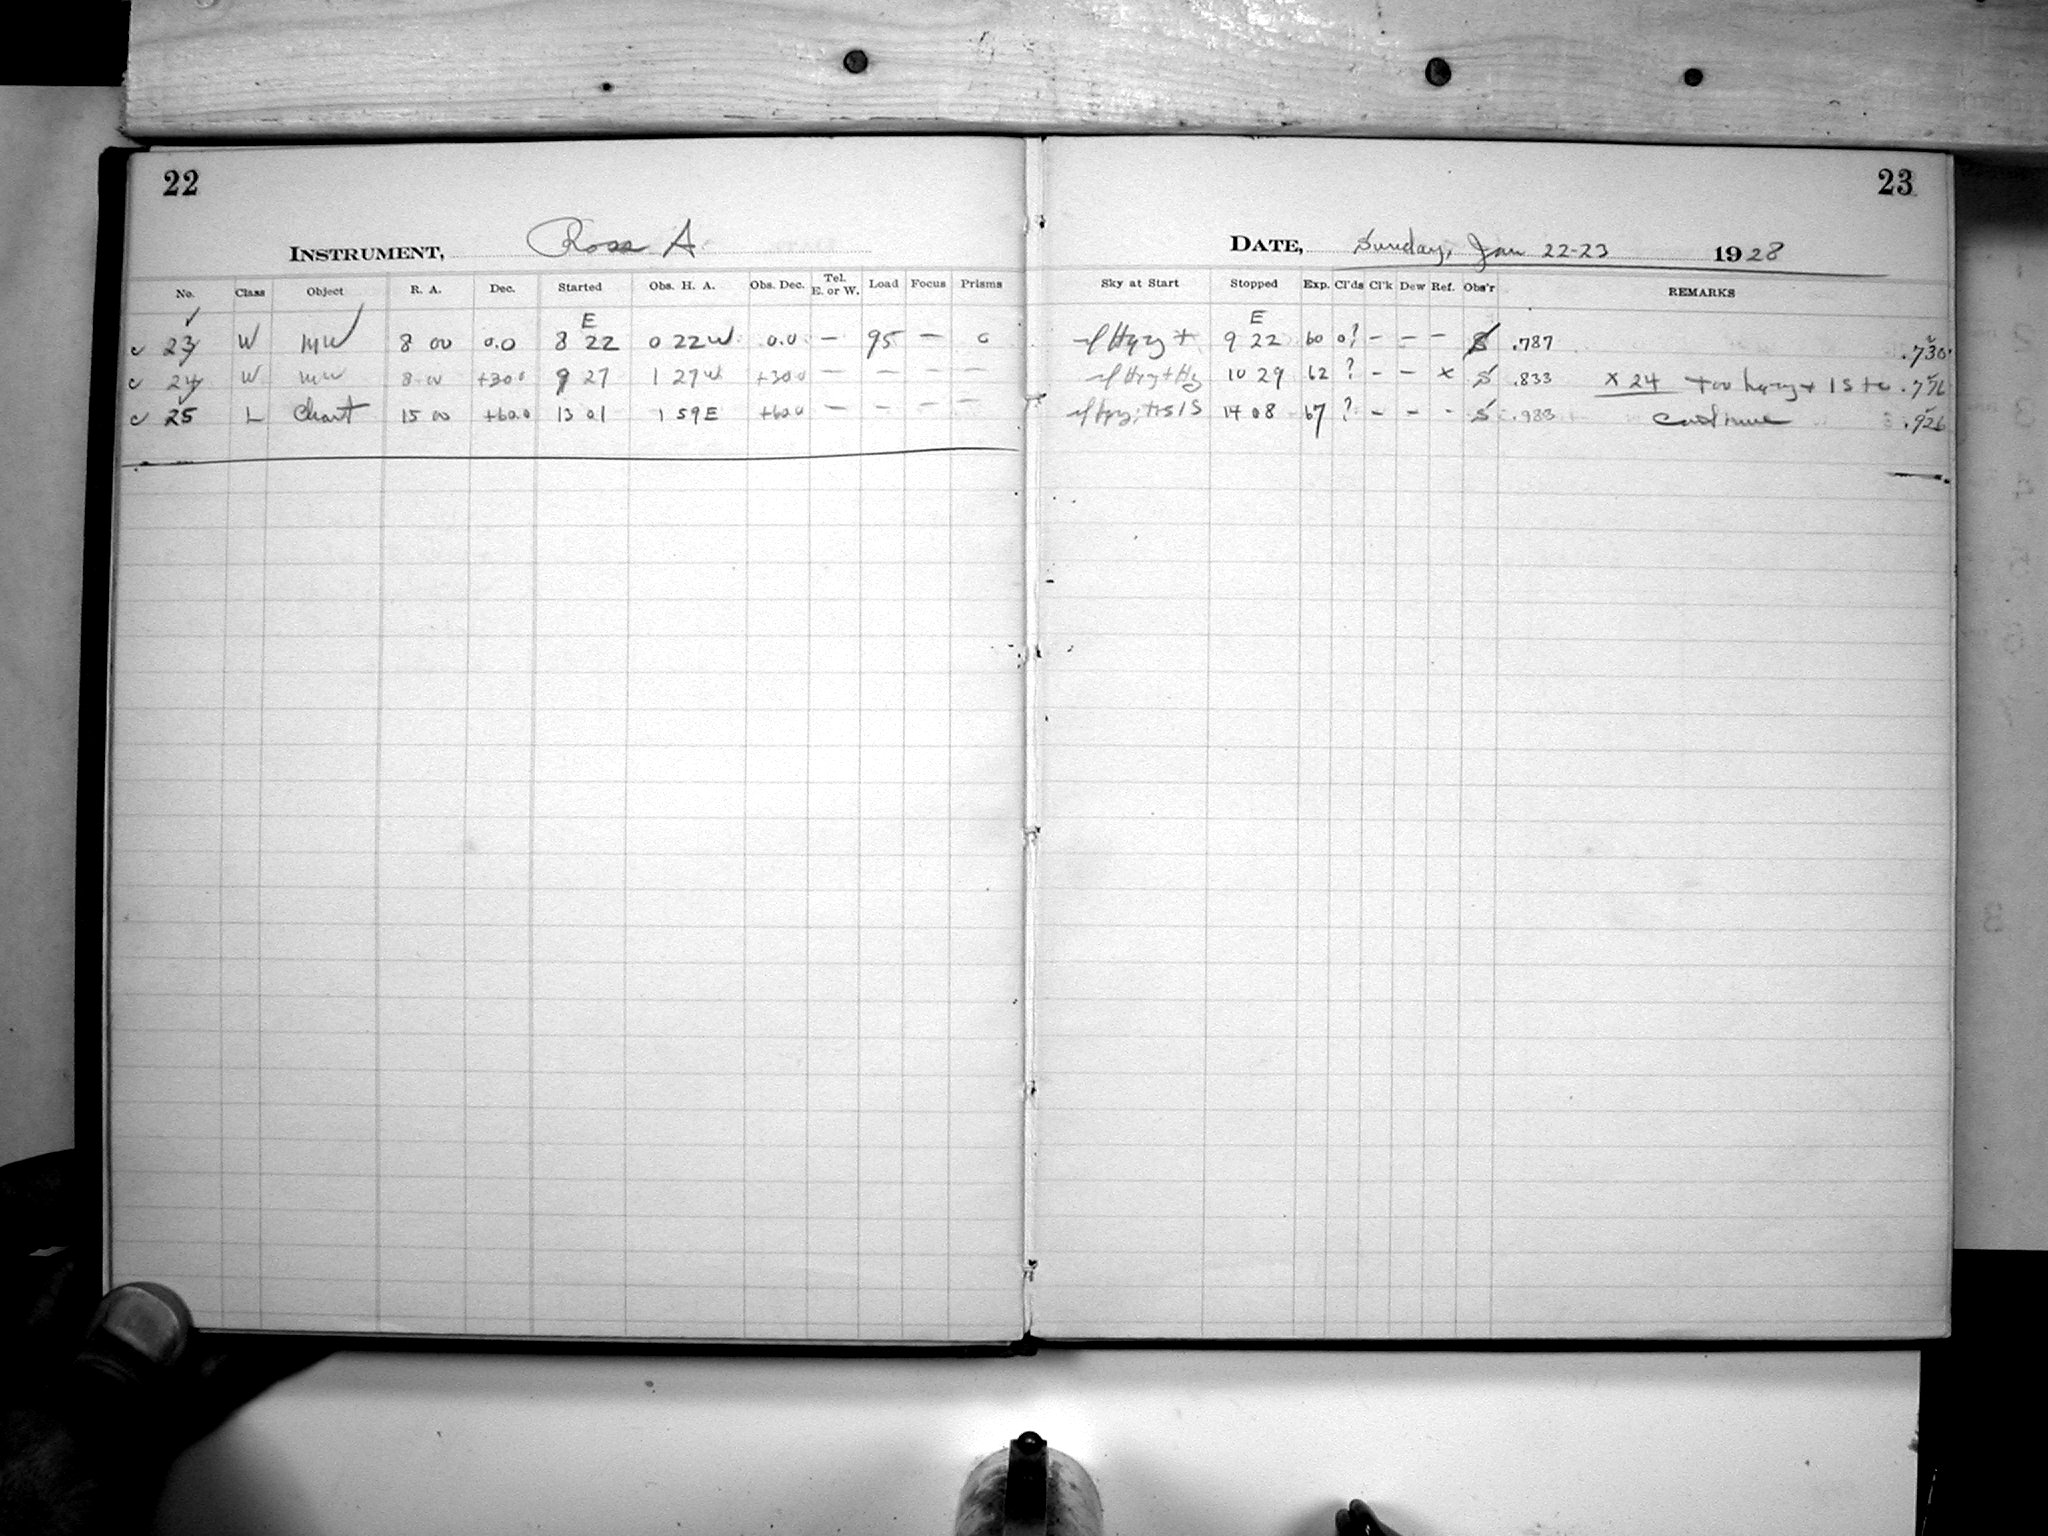 22
INSTRUMENT, Ross A.
No. Class Object R. A. Dec. Started Obs. H. A. Obs. Dec. Tel. E. or W. Load Focus Prisms
E
23 W MW 8 00 0.0 8 22 0 22 W 0.0 — 95 — 0
24 W MW 8 00 +30.0 9 27 1 27 W +30.0 — — — —
25 L Chart 15 00 +60.0 13 01 1 59 E +60.0 — — — —
23
DATE, Sunday, Jan 22-23 1928
Sky at Start Stopped Exp. Cl'ds Cl'k Dew Ref. Obs'r REMARKS
E
9 22 60 0? — — — S .787 .730
10 29 62 ? — — x S .833 x 24 too hazy + .776
14 08 67 ? - - - S .983 .926